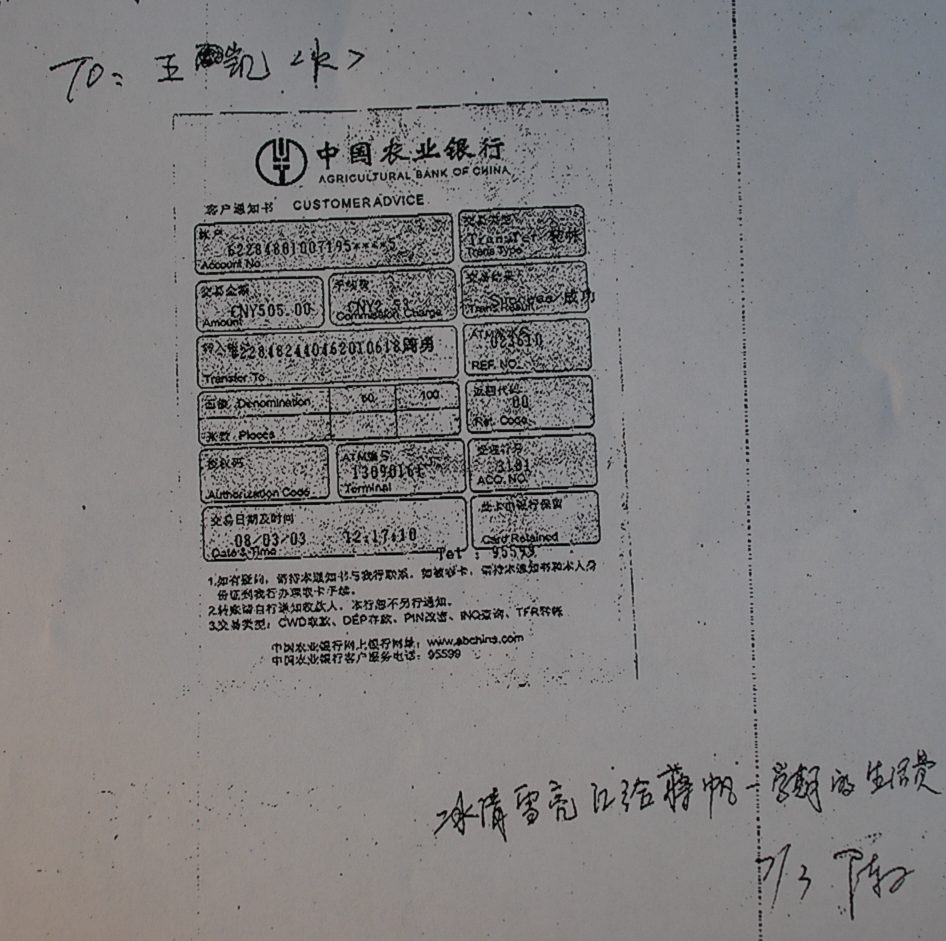 TO: 王凯<水>
中国农业银行
AGRICULTURAL BANK OF CHINA
客户通知书 CUSTOMER ADVICE
账户
62284881007195****5
Account No
交易类型
Transfer 转帐
Trans Type
交易金额
CNY505.00
Amount
手续费
CNY2.53
Commission Charge
交易结果
Success/成功
Trans Result
转入帐户
6228482440462010618周勇
Transfer To
ATM流水号
023610
REF. NO.
面额 Denomination 50 100
张数 Pieces
返回代码
00
Ret. Code
授权码
Authorization Code
ATM编号
13090161
Terminal
交通行号
3101
ACQ. NO.
交易日期及时间
08/03/03 12:17:10
Date & Time
此卡由银行保留
Card Retained
Tel : 95599
1.如有疑问,请持本通知书与我行联系。如被吞卡,请持本通知书和本人身
份证到我行办理取卡手续。
2.转账请自行通知收款人,本行恕不另行通知。
3.交易类型:CWD取款、DEP存款、PIN改密、INQ查询、TFR转帐
中国农业银行网上银行网址:www.abchina.com
中国农业银行客户服务电话:95599
冰清雪亮汇给蒋帆一学期的生活费
7/3